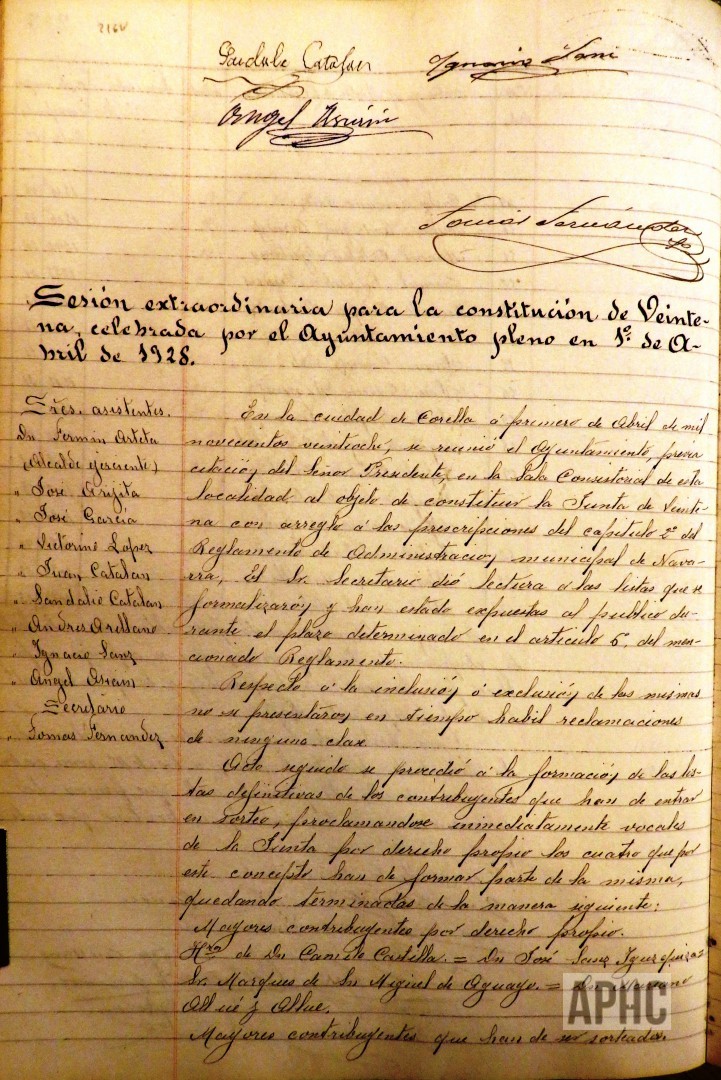 216V
Sandalio Catalan
Ignacio Sanz
Angel Asiain
Tomás Fernández
Sesión extraordinaria para la constitución de Veinte-
na, celebrada por el Ayuntamiento pleno en 1º. de A-
bril de 1928.
Sres. asistentes.
Dn Fermin Arteta
(Alcalde ejerciente)
" José Arijita
" José García
" Victorino Lopez
" Juan Catalan
" Sandalio Catalan
" Andres Arellano
" Ignacio Sanz
" Angel Asiain
Secretario
" Tomas Fernandez
En la ciudad de Corella á primero de Abril de mil
novecientos veintiocho, se reunió el Ayuntamiento, previa
citación del Señor Presidente, en la Sala Consistorial de esta
localidad al objeto de constituir la Junta de Veinte-
na con arreglo á las prescripciones del capitulo 2º del
Reglamento de Administración municipal de Nava-
rra, El Sr. Secretario dió lectura a las listas que se
formalizarón y han estado expuestas al publico du-
rante el plazo determinado en el articulo 6. del men-
cionado Reglamento.
Respecto á la inclusión ó exclusión de las mismas
no se presentarón en tiempo habil reclamaciones
de ninguna clase
Acto seguido se procedió á la formación de las lis-
tas definitivas de los contribuyentes que han de entrar
en sorteo, proclamandose inmediatamente vocales
de la Junta por derecho propio los cuatro que por
este concepto han de formar parte de la misma,
quedando terminadas de la manera siguiente:
Mayores contribuyentes por derecho propio.
Hros de Dn Camilo Castilla. = Dn José Sanz
Sr. Marques de Sn Miguel de Aguayo. = Dn Mariano
Allué y Allue.
Mayores contribuyentes que han de ser sorteados.
APHC